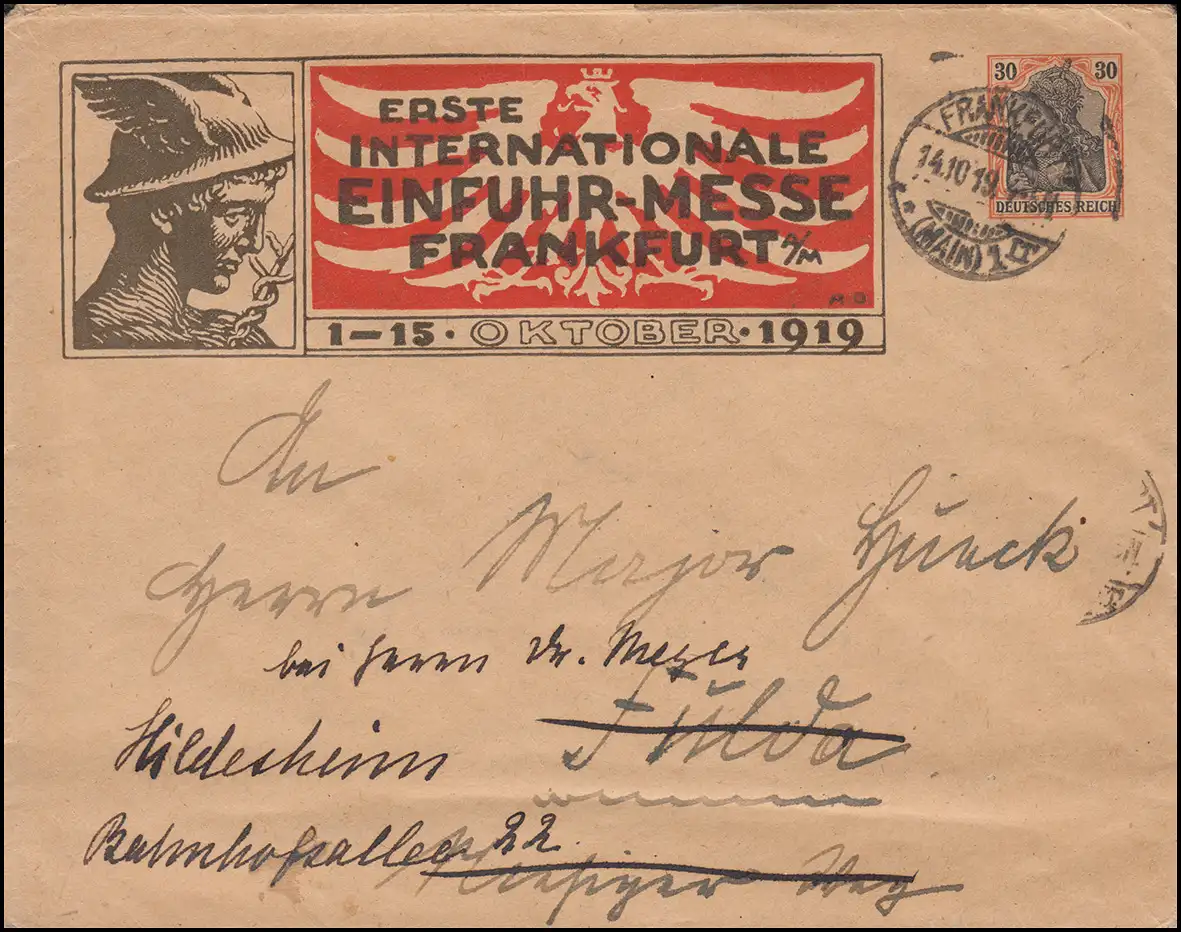 ERSTE
INTERNATIONALE
EINFUHR-MESSE
FRANKFURT A/M
1–15 · OKTOBER · 1919
30 30
DEUTSCHES REICH
FRANKFURT
14.10.19
(MAIN) 1
An
Herrn Major Hueck
bei Herrn Dr. Meyer
Fulda
Hildesheim
Bahnhofsallee 22
Weg